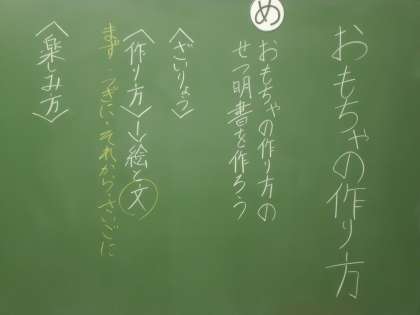 おもちゃの作り方
め
おもちゃの作り方の
せつ明書を作ろう
〈ざいりょう〉
〈作り方〉→絵と文
まず つぎに・それから・さいごに
〈楽しみ方〉